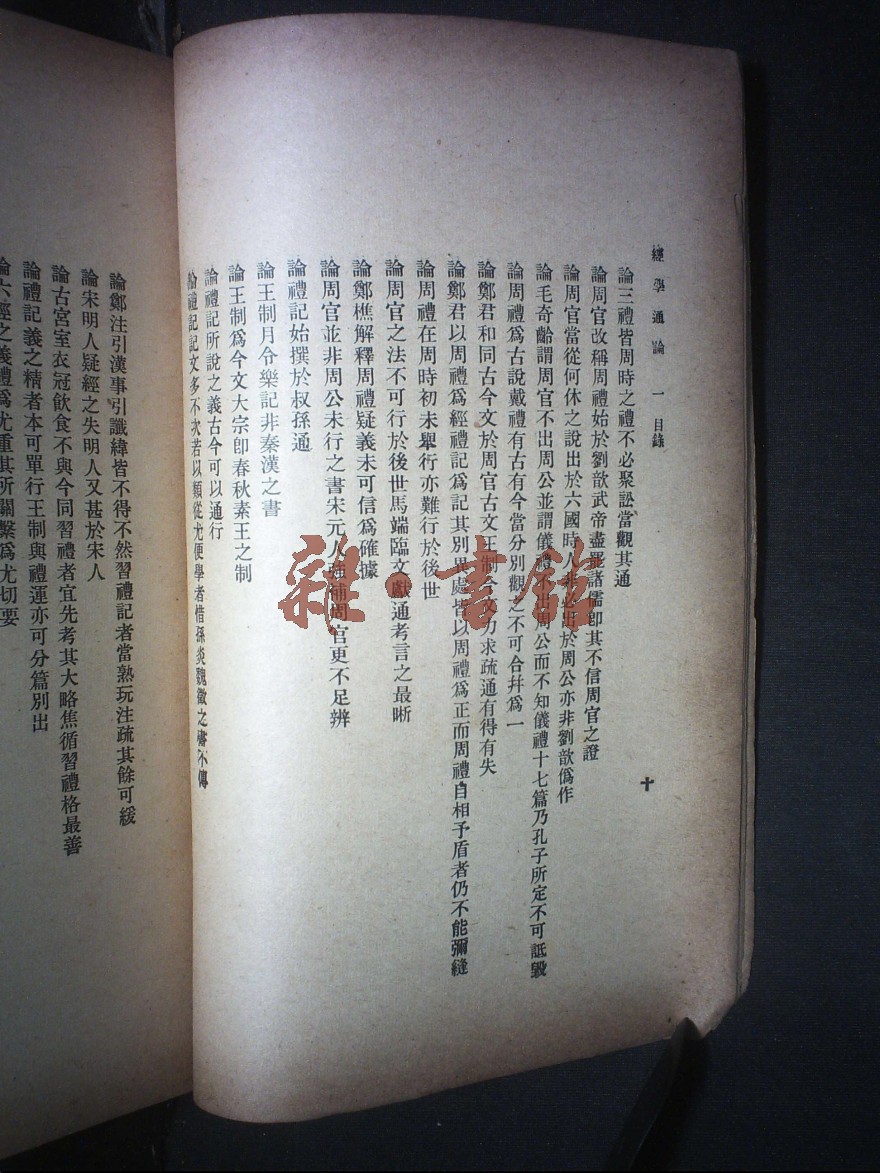 經學通論 一 目錄
十
論三禮皆周時之禮不必聚訟當觀其通
論周官改稱周禮始於劉歆武帝盡罷諸儒卽其不信周官之證
論周官當從何休之說出於六國時人非必出於周公亦非劉歆僞作
論毛奇齡謂周官不出周公並謂儀禮不出周公而不知儀禮十七篇乃孔子所定不可詆毀
論周禮爲古說戴禮有古有今當分別觀之不可合幷爲一
論鄭君和同古今文於周官古文王制今文力求疏通有得有失
論鄭君以周禮爲經禮記爲記其別異處皆以周禮爲正而周禮自相矛盾者仍不能彌縫
論周禮在周時初未舉行亦難行於後世
論周官之法不可行於後世馬端臨文獻通考言之最晰
論鄭樵解釋周禮疑義未可信爲確據
論周官並非周公未行之書宋元人強補周官更不足辨
論禮記始撰於叔孫通
論王制月令樂記非秦漢之書
論王制爲今文大宗卽春秋素王之制
論禮記所說之義古今可以通行
論禮記記文多不次若以類從尤便學者惜孫炎魏徵之書不傳
論鄭注引漢事引讖緯皆不得不然習禮記者當熟玩注疏其餘可緩
論宋明人疑經之失明人又甚於宋人
論古宮室衣冠飮食不與今同習禮者宜先考其大略焦循習禮格最善
論禮記義之精者本可單行王制與禮運亦可分篇別出
論六經之義禮爲尤重其所關繫爲尤切要
雜·書館